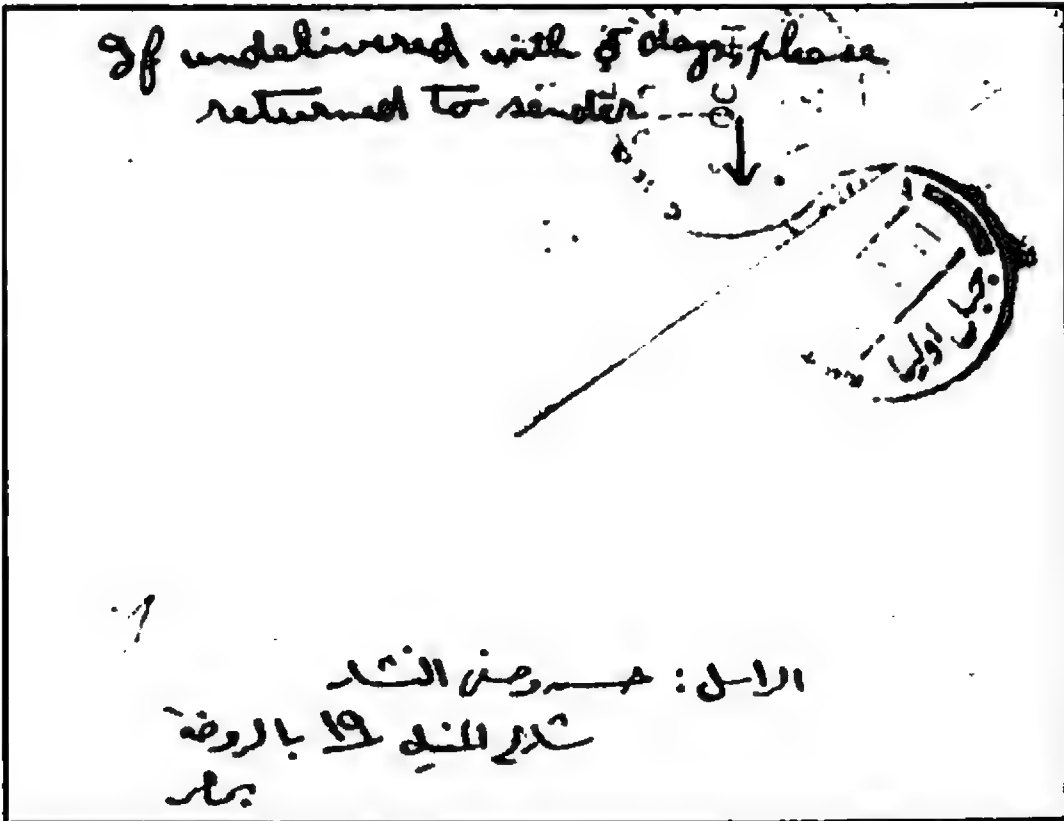 If undelivered with 5 days, please
returned to sender
جبل اوليا
الراسل : حسن وصفى النشار
شارع المنيل 19 بالروضة
بمصر